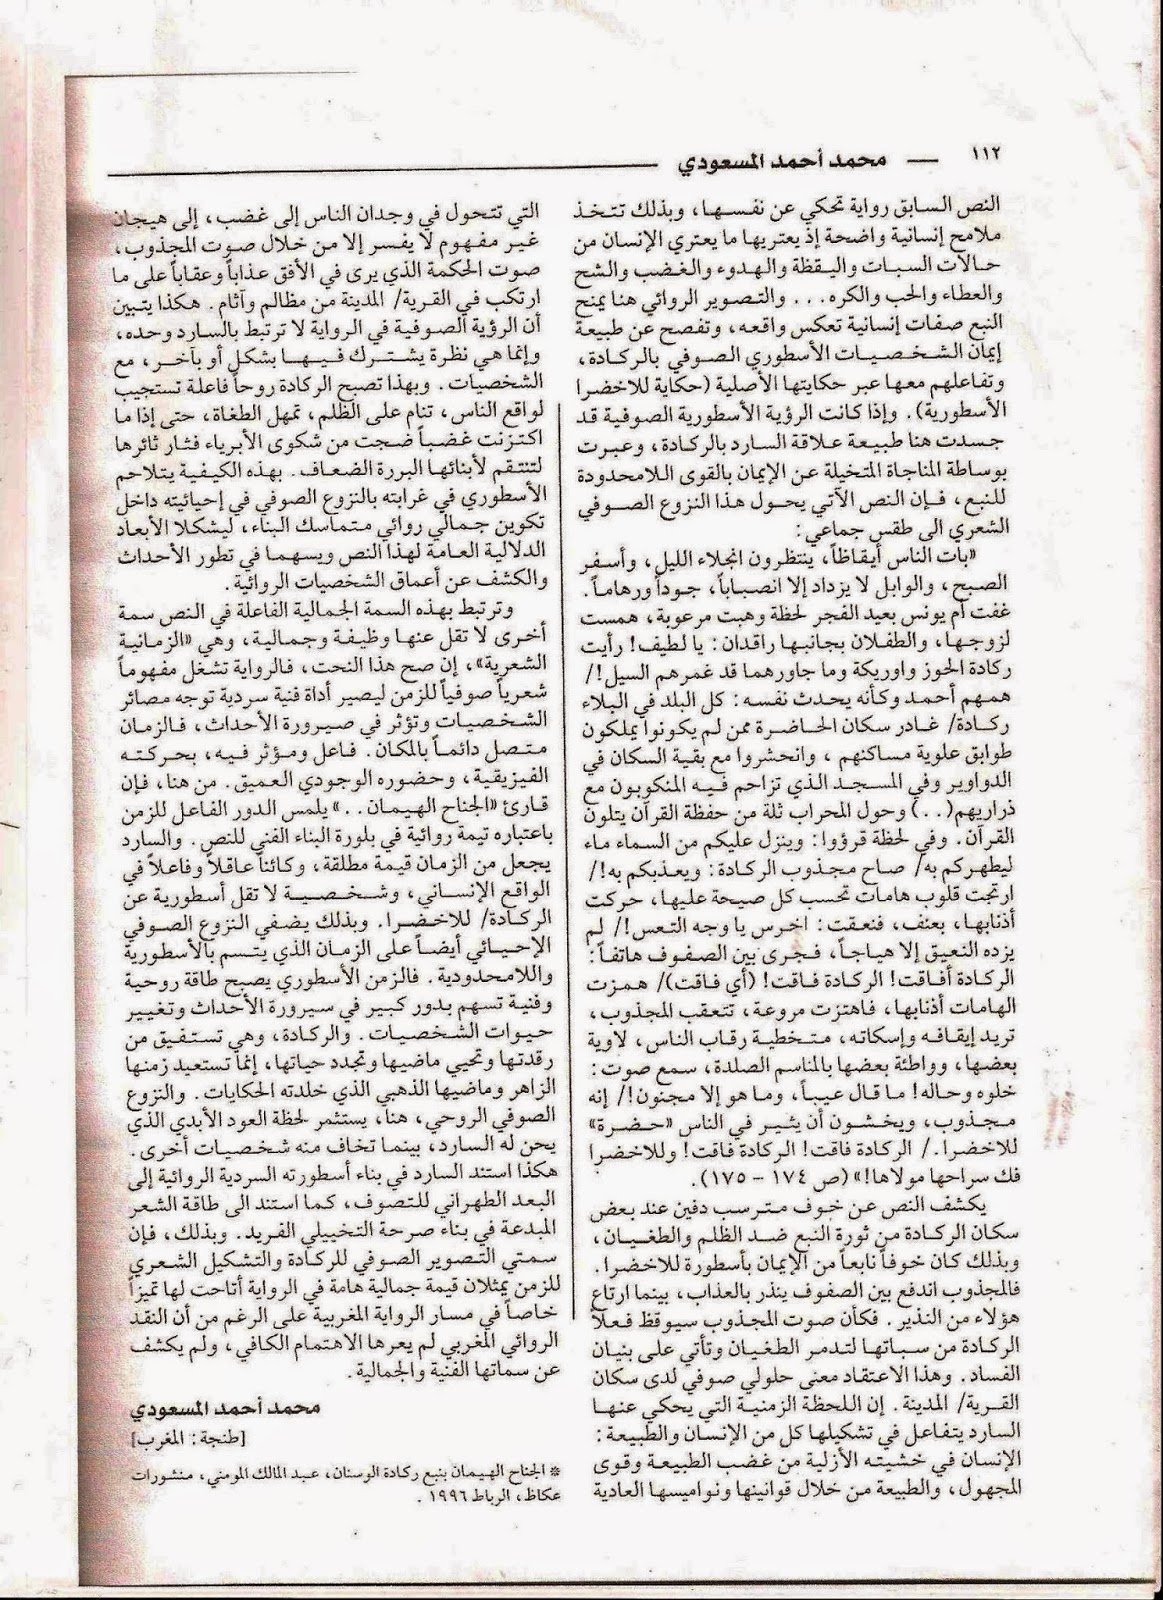 ١١٢ — محمد أحمد المسعودي
النص السابق رواية تحكي عن نفسها، وبذلك تتخذ
ملامح إنسانية واضحة إذ يعتريها ما يعتري الإنسان من
حالات السبات واليقظة والهدوء والغضب والشح
والعطاء والحب والكره... والتصوير الروائي هنا يمنح
النبع صفات إنسانية تعكس واقعه، وتفصح عن طبيعة
إيمان الشخصيات الأسطوري الصوفي بالركادة،
وتفاعلهم معها عبر حكايتها الأصلية (حكاية للاخضرا
الأسطورية). وإذا كانت الرؤية الأسطورية الصوفية قد
جسدت هنا طبيعة علاقة السارد بالركادة، وعبرت
بوساطة المناجاة المتخيلة عن الإيمان بالقوى اللامحدودة
للنبع، فإن النص الآتي يحول هذا النزوع الصوفي
الشعري الى طقس جماعي:
«بات الناس أيقاظاً، ينتظرون انجلاء الليل، وأسفر
الصبح، والوابل لا يزداد إلا انصباباً، جوداً ورهاماً.
غفت أم يونس بعيد الفجر لحظة وهبت مرعوبة، همست
لزوجها، والطفلان بجانبها راقدان: يا لطيف! رأيت
ركادة الحوز واوريكة وما جاورهما قد غمرهم السيل!/
همهم أحمد وكأنه يحدث نفسه: كل البلد في البلاء
ركادة/ غادر سكان الحاضرة ممن لم يكونوا يملكون
طوابق علوية مساكنهم، وانحشروا مع بقية السكان في
الدواوير وفي المسجد الذي تزاحم فيه المنكوبون مع
ذراريهم(..) وحول المحراب ثلة من حفظة القرآن يتلون
القرآن. وفي لحظة قرؤوا: وينزل عليكم من السماء ماء
ليطهركم به/ صاح مجذوب الركادة: ويعذبكم به!/
ارتجت قلوب هامات تحسب كل صيحة عليها، حركت
أذنابها، بعنف، فنعقت: اخرس يا وجه التعس!/ لم
يزده النعيق إلا هياجاً، فجرى بين الصفوف هاتفاً:
الركادة أفاقت! الركادة فاقت! (أي فاقت)/ همزت
الهامات أذنابها، فاهتزت مروعة، تتعقب المجذوب،
تريد إيقافه وإسكاته، متخطية رقاب الناس، لاوية
بعضها، وواطئة بعضها بالمناسم الصلدة، سمع صوت:
خلوه وحاله! ما قال عيباً، وما هو إلا مجنون!/ إنه
مجذوب، ويخشون أن يثير في الناس «حضرة»
للاخضرا./ الركادة فاقت! الركادة فاقت! وللاخضرا
فك سراحها مولاها!» (ص ١٧٤ – ١٧٥).
يكشف النص عن خوف مترسب دفين عند بعض
سكان الركادة من ثورة النبع ضد الظلم والطغيان،
وبذلك كان خوفاً نابعاً من الإيمان بأسطورة للاخضرا.
فالمجذوب اندفع بين الصفوف ينذر بالعذاب، بينما ارتاع
هؤلاء من النذير. فكأن صوت المجذوب سيوقظ فعلاً
الركادة من سباتها لتدمر الطغيان وتأتي على بنيان
الفساد. وهذا الاعتقاد معنى حلولي صوفي لدى سكان
القرية/ المدينة. إن اللحظة الزمنية التي يحكي عنها
السارد يتفاعل في تشكيلها كل من الإنسان والطبيعة:
الإنسان في خشيته الأزلية من غضب الطبيعة وقوى
المجهول، والطبيعة من خلال قوانينها ونواميسها العادية
التي تتحول في وجدان الناس إلى غضب، إلى هيجان
غير مفهوم لا يفسر إلا من خلال صوت المجذوب،
صوت الحكمة الذي يرى في الأفق عذاباً وعقاباً على ما
ارتكب في القرية/ المدينة من مظالم وآثام. هكذا يتبين
أن الرؤية الصوفية في الرواية لا ترتبط بالسارد وحده،
وإنما هي نظرة يشترك فيها بشكل أو بآخر، مع
الشخصيات. وبهذا تصبح الركادة روحاً فاعلة تستجيب
لواقع الناس، تنام على الظلم، تمهل الطغاة، حتى إذا ما
اكتنزت غضباً ضجت من شكوى الأبرياء فثار ثائرها
لتنتقم لأبنائها البررة الضعاف. بهذه الكيفية يتلاحم
الأسطوري في غرابته بالنزوع الصوفي في إحيائيته داخل
تكوين جمالي روائي متماسك البناء، ليشكلا الأبعاد
الدلالية العامة لهذا النص ويسهما في تطور الأحداث
والكشف عن أعماق الشخصيات الروائية.
وترتبط بهذه السمة الجمالية الفاعلة في النص سمة
أخرى لا تقل عنها وظيفة وجمالية، وهي «الزمانية
الشعرية»، إن صح هذا النحت، فالرواية تشغل مفهوماً
شعرياً صوفياً للزمن ليصير أداة فنية سردية توجه مصائر
الشخصيات وتؤثر في صيرورة الأحداث، فالزمان
متصل دائماً بالمكان. فاعل ومؤثر فيه، بحركته
الفيزيقية، وحضوره الوجودي العميق. من هنا، فإن
قارئ «الجناح الهيمان..» يلمس الدور الفاعل للزمن
باعتباره تيمة روائية في بلورة البناء الفني للنص. والسارد
يجعل من الزمان قيمة مطلقة، وكائناً عاقلاً وفاعلاً في
الواقع الإنساني، وشخصية لا تقل أسطورية عن
الركادة/ للاخضرا. وبذلك يضفي النزوع الصوفي
الإحيائي أيضاً على الزمان الذي يتسم بالأسطورية
واللامحدودية. فالزمن الأسطوري يصبح طاقة روحية
وفنية تسهم بدور كبير في سيرورة الأحداث وتغيير
حيوات الشخصيات. والركادة، وهي تستفيق من
رقدتها وتحيي ماضيها وتجدد حياتها، إنما تستعيد زمنها
الزاهر وماضيها الذهبي الذي خلدته الحكايات. والنزوع
الصوفي الروحي، هنا، يستثمر لحظة العود الأبدي الذي
يحن له السارد، بينما تخاف منه شخصيات أخرى.
هكذا استند السارد في بناء أسطورته السردية الروائية إلى
البعد الطهراني للتصوف، كما استند الى طاقة الشعر
المبدعة في بناء صرحة التخييلي الفريد. وبذلك، فإن
سمتي التصوير الصوفي للركادة والتشكيل الشعري
للزمن يمثلان قيمة جمالية هامة في الرواية أتاحت لها تميزاً
خاصاً في مسار الرواية المغربية على الرغم من أن النقد
الروائي المغربي لم يعرها الاهتمام الكافي، ولم يكشف
عن سماتها الفنية والجمالية.
محمد أحمد المسعودي
[طنجة: المغرب]
* الجناح الهيمان بنبع ركادة الوسنان، عبد المالك المومني، منشورات
عكاظ، الرباط ١٩٩٦.